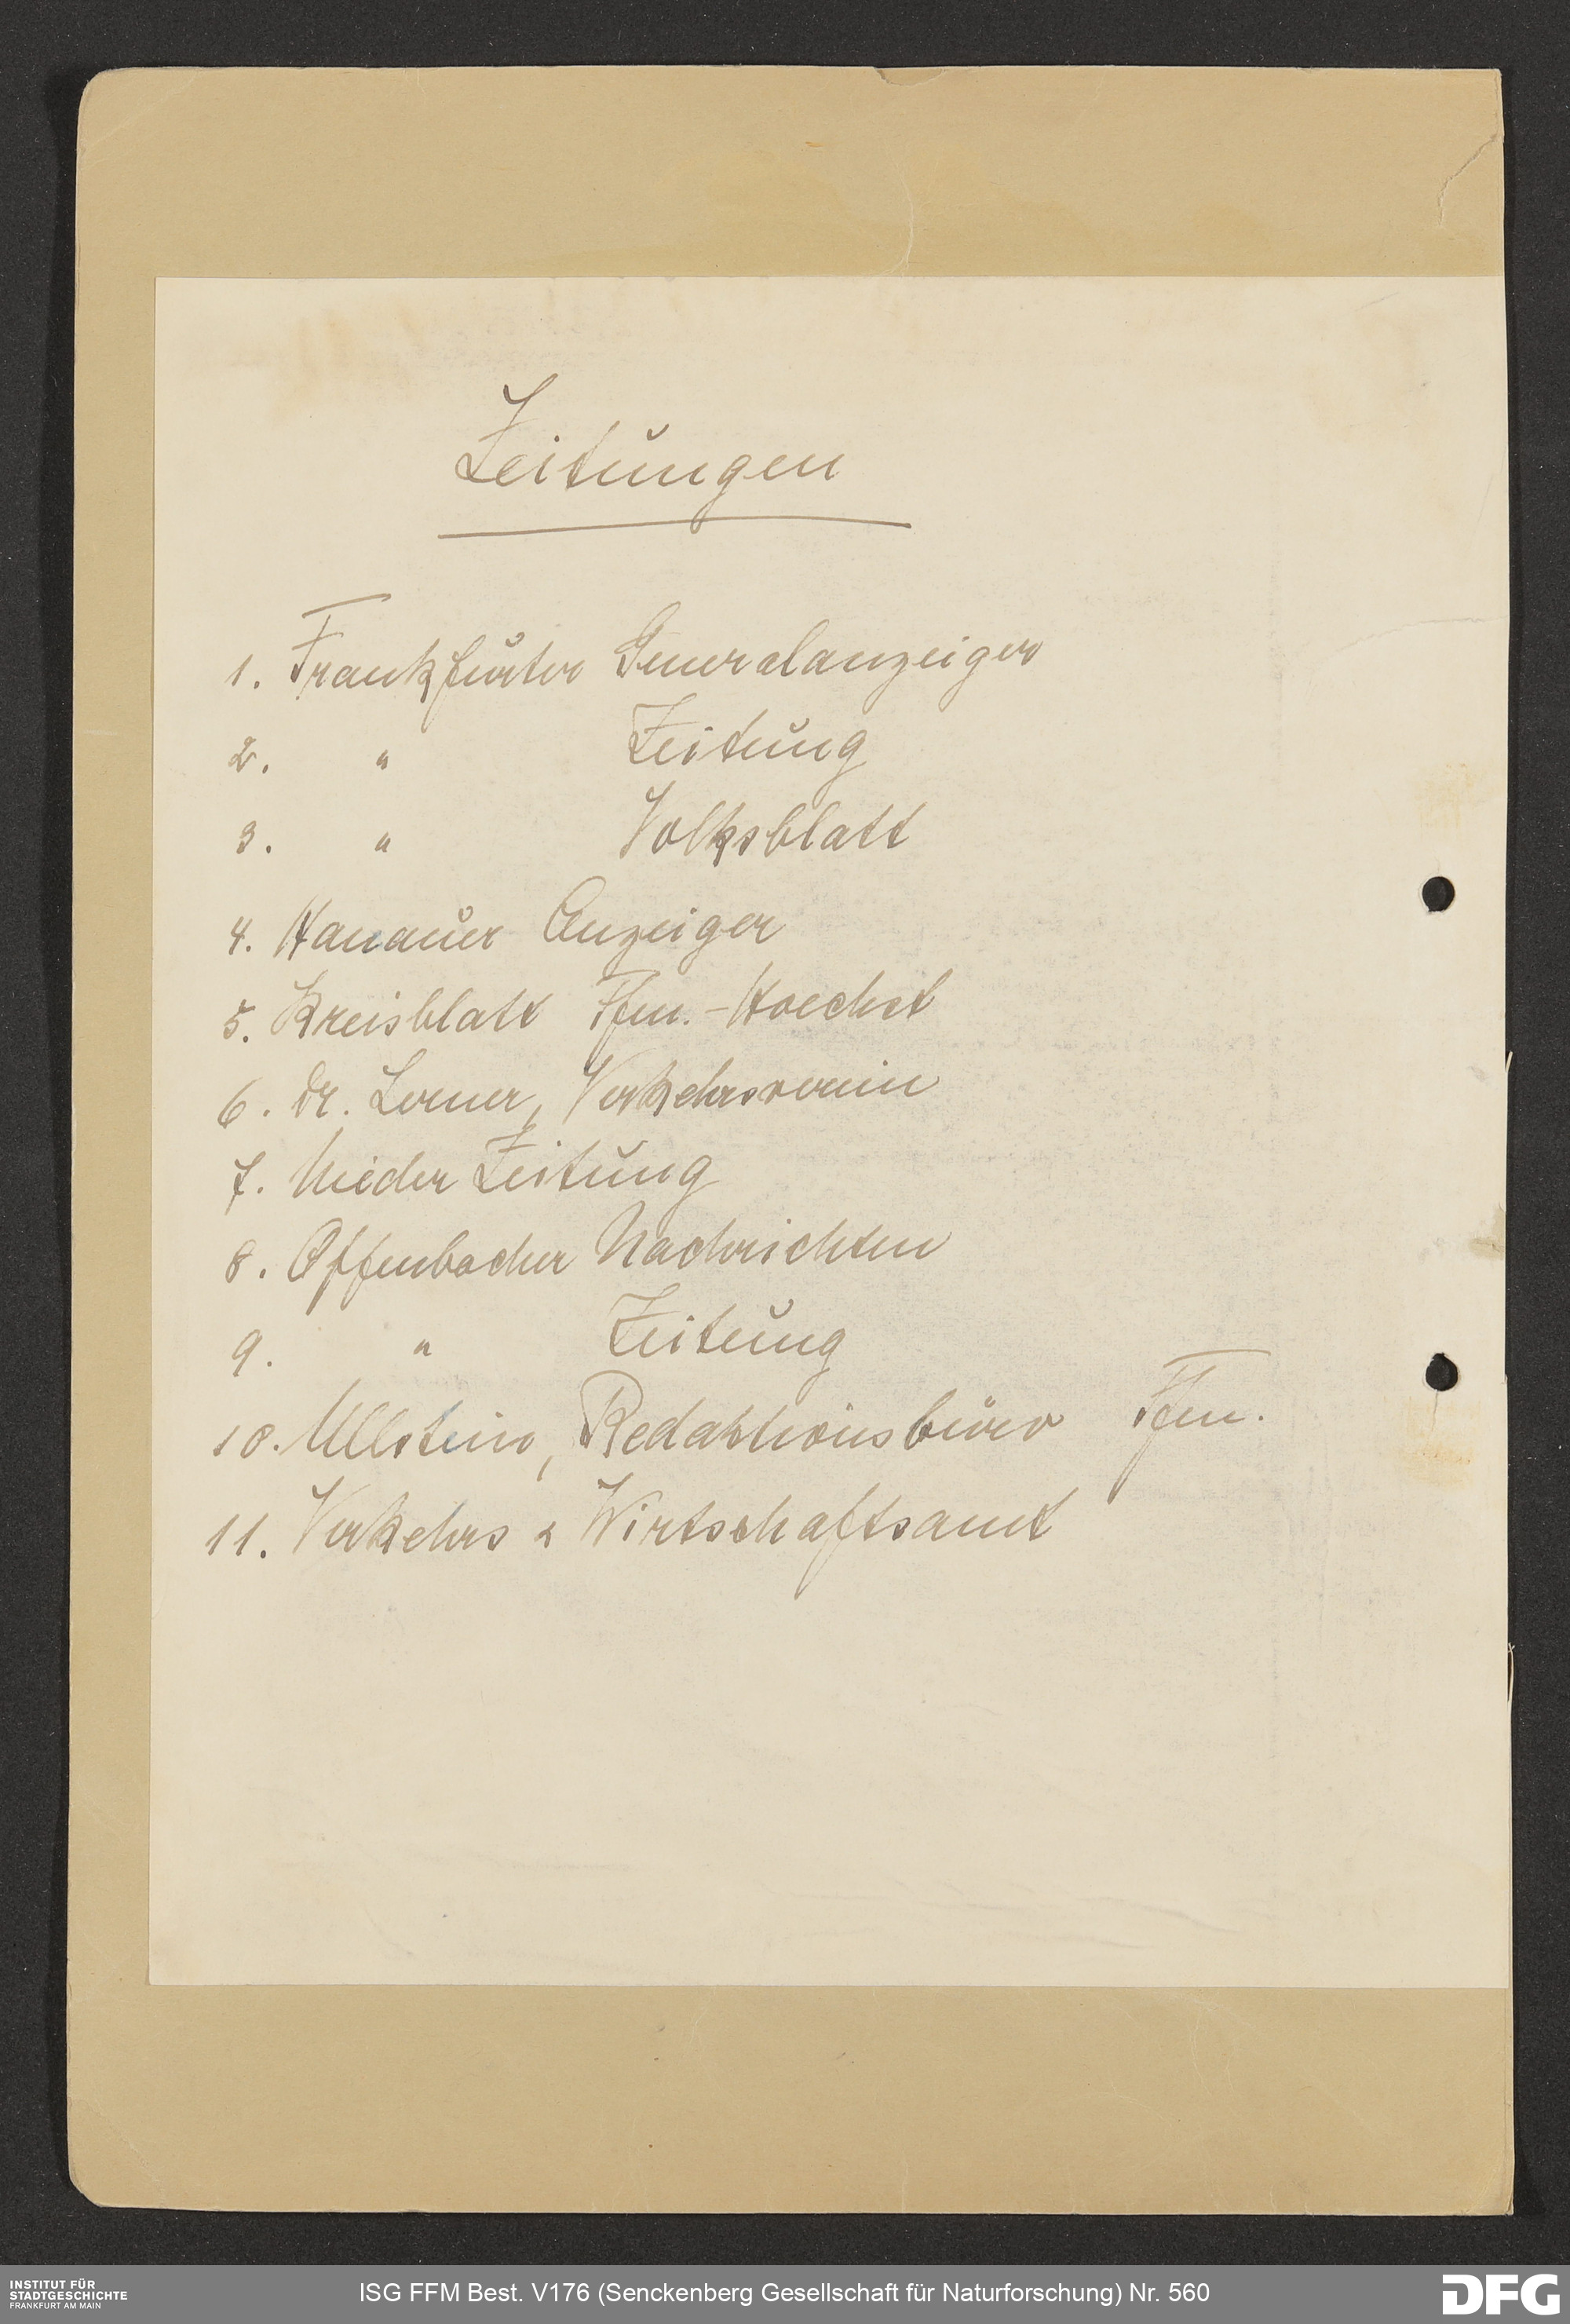 Zeitungen
1. Frankfurter Generalanzeiger
2. " Zeitung
3. " Volksblatt
4. Hanauer Anzeiger
5. Kreisblatt Ffm.-Hoechst
6. Dr. Lerner, Verkehrsverein
7. Nieder Zeitung
8. Offenbacher Nachrichten
9. " Zeitung
10. Ullstein, Redaktionsbüro Ffm.
11. Verkehrs & Wirtschaftsamt
INSTITUT FÜR
STADTGESCHICHTE
FRANKFURT AM MAIN
ISG FFM Best. V176 (Senckenberg Gesellschaft für Naturforschung) Nr. 560
DFG